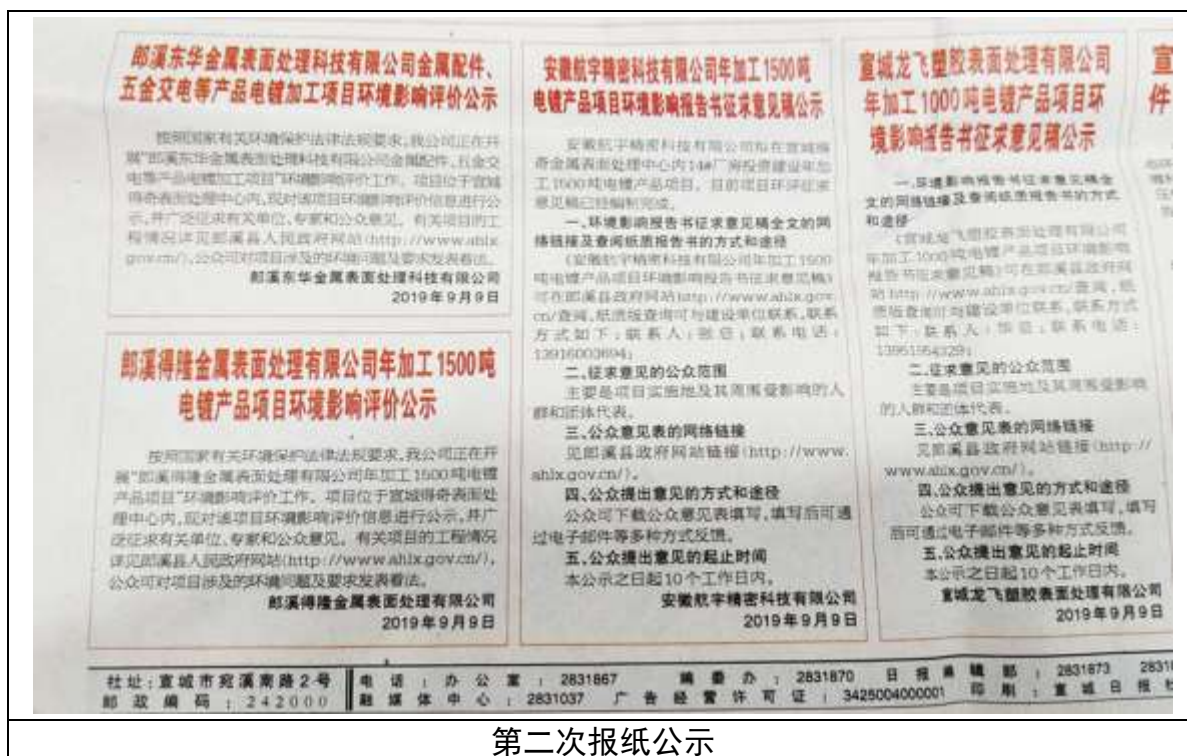 郎溪东华金属表面处理科技有限公司金属配件、
五金交电等产品电镀加工项目环境影响评价公示
按照国家有关环境保护法律法规要求,我公司正在开
展"郎溪东华金属表面处理科技有限公司金属配件、五金交
电等产品电镀加工项目"环境影响评价工作。项目位于宣城
得奇表面处理中心内,现对该项目环境影响评价信息进行公
示,并广泛征求有关单位、专家和公众意见。有关项目的工
程情况详见郎溪县人民政府网站(http://www.ahlx.
gov.cn/),公众可对项目涉及的环境问题及要求发表看法。
郎溪东华金属表面处理科技有限公司
2019年9月9日
郎溪得隆金属表面处理有限公司年加工1500吨
电镀产品项目环境影响评价公示
按照国家有关环境保护法律法规要求,我公司正在开
展"郎溪得隆金属表面处理有限公司年加工1500吨电镀
产品项目"环境影响评价工作。项目位于宣城得奇表面处
理中心内,现对该项目环境影响评价信息进行公示,并广
泛征求有关单位、专家和公众意见。有关项目的工程情况
详见郎溪县人民政府网站(http://www.ahlx.gov.cn/),
公众可对项目涉及的环境问题及要求发表看法。
郎溪得隆金属表面处理有限公司
2019年9月9日
安徽航宇精密科技有限公司年加工1500吨
电镀产品项目环境影响报告书征求意见稿公示
安徽航宇精密科技有限公司拟在宣城得
奇金属表面处理中心内14#厂房投资建设年加
工1500吨电镀产品项目。目前项目环评征求
意见稿已经编制完成。
一、环境影响报告书征求意见稿全文的网
络链接及查阅纸质报告书的方式和途径
《安徽航宇精密科技有限公司年加工1500
吨电镀产品项目环境影响报告书征求意见稿》
可在郎溪县政府网站http://www.ahlx.gov.
cn/查阅,纸质版查询可与建设单位联系,联系
方式如下:联系人:张总;联系电话:
13916003694;
二、征求意见的公众范围
主要是项目实施地及其周围受影响的人
群和团体代表。
三、公众意见表的网络链接
见郎溪县政府网站链接(http://www.
ahlx.gov.cn/)。
四、公众提出意见的方式和途径
公众可下载公众意见表填写,填写后可通
过电子邮件等多种方式反馈。
五、公众提出意见的起止时间
本公示之日起10个工作日内。
安徽航宇精密科技有限公司
2019年9月9日
宣城龙飞塑胶表面处理有限公司
年加工1000吨电镀产品项目环
境影响报告书征求意见稿公示
一、环境影响报告书征求意见稿全
文的网络链接及查阅纸质报告书的方式
和途径
《宣城龙飞塑胶表面处理有限公司
年加工1000吨电镀产品项目环境影响
报告书征求意见稿》可在郎溪县政府网
站http://www.ahlx.gov.cn/查阅,纸
质版查询可与建设单位联系,联系方式
如下:联系人:
13951954329;
二、征求意见的公众范围
主要是项目实施地及其周围受影响
的人群和团体代表。
三、公众意见表的网络链接
见郎溪县政府网站链接(http://
www.ahlx.gov.cn/)。
四、公众提出意见的方式和途径
公众可下载公众意见表填写,填写
后可通过电子邮件等多种方式反馈。
五、公众提出意见的起止时间
本公示之日起10个工作日内。
宣城龙飞塑胶表面处理有限公司
2019年9月9日
宣
件
社址:宣城市宛溪南路2号 电话:办公室:2831867 编委办:2831870 日报编辑部:2831873
邮政编码:242000 融媒体中心:2831037 广告经营许可证:3425004000001 印刷:宣城日报社
第二次报纸公示